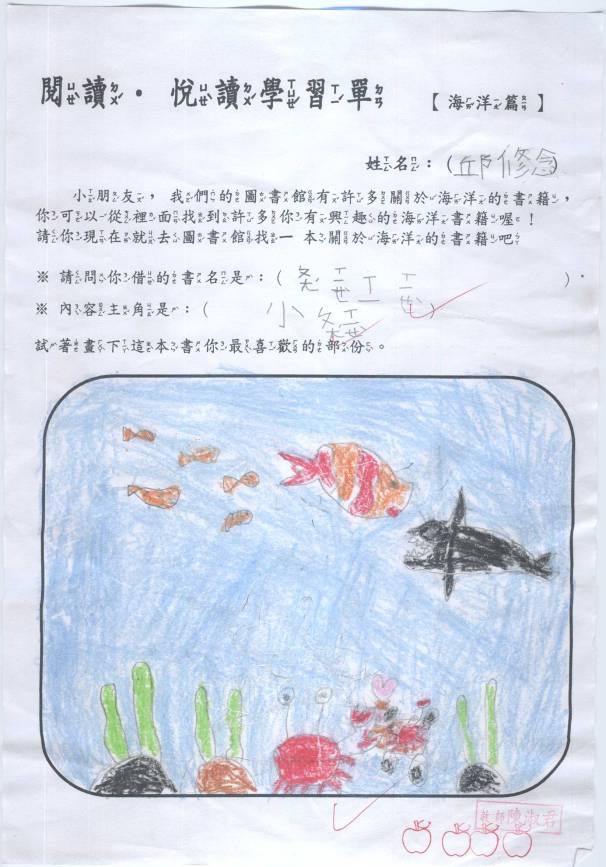 閱讀・悅讀學習單 【海洋篇】
姓名：(邱修念)
小朋友，我們的圖書館有許多關於海洋的書籍，
你可以從裡面找到許多你有興趣的海洋書籍喔！
請你現在就去圖書館找一本關於海洋的書籍吧
※ 請問你借的書名是：( )。
※ 內容主角是：(小 )
試著畫下這本書你最喜歡的部份。
教師陳淑君